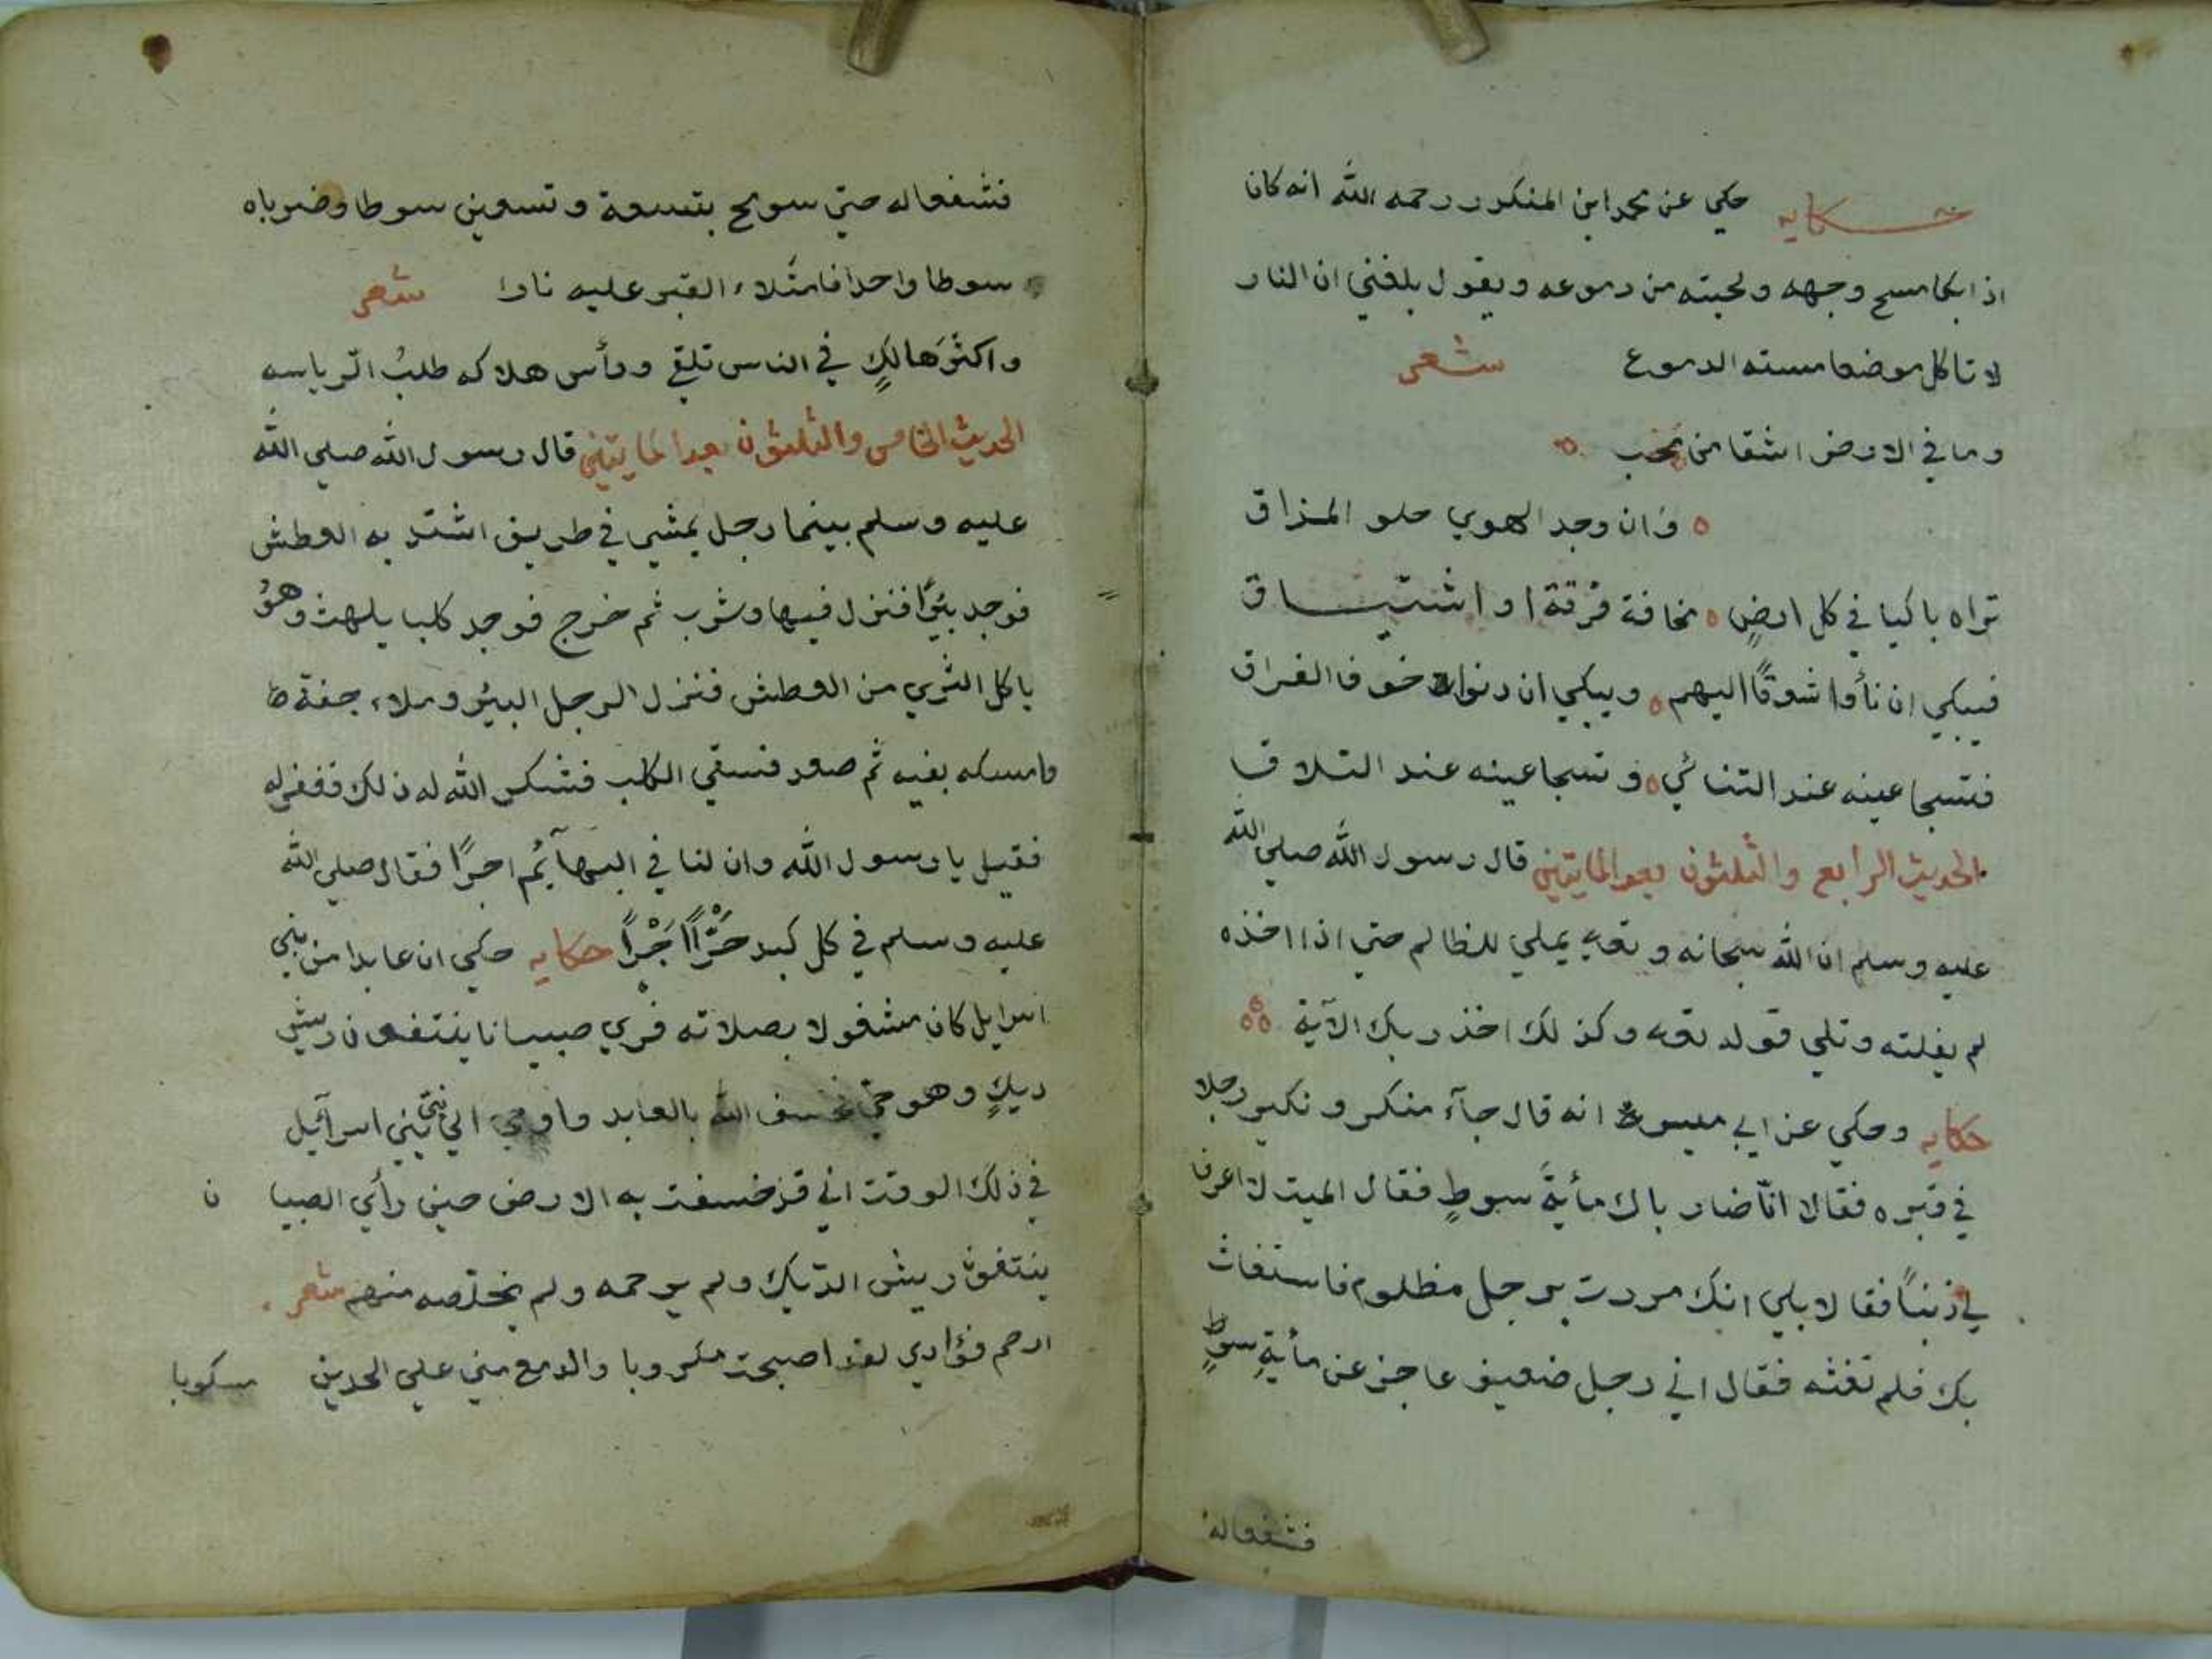 حكاية حكي عن محمد ابن المنكدر رحمه الله انه كان
اذا بكا مسح وجهه ولحيته من دموعه ويقول بلغني ان النار
لا تاكل موضعا مسته الدموع شعر
وما في الارض اشقا من محب
وان وجد الهوي حلو المذاق
تراه باكيا في كل ارضٍ مخافة فرقة او اشتيـاق
فيبكي ان نأوا شوقًا اليهم ويبكي ان دنوا خوف الفراق
فتسجا عينه عند التنائي وتسجا عينه عند التلاقـ
الحديث الرابع والثلثون بعد المايتين قال رسول الله صلي الله
عليه وسلم ان الله سبحانه وتعه يملي للظالم حتي اذا اخذه
لم يفلته وتلي قوله تعه وكذلك اخذ ربك الآية
حكايه وحكي عن ابي ميسرة انه قال جآء منكر ونكير رجلا
في قبره فقالا انّا ضارباك مأيةَ سوطٍ فقال الميت لا اعرف
لي ذنباً فقالا بلي انك مررت برجل مظلوم فاستغاث
بك فلم تغثه فقال اني رجل ضعيف عاجز عن مأيةِ سوطٍ
فشفعاله
فشفعاله حتي سومح بتسعة وتسعين سوطا وضرباه
سوطا واحدا فامتلاء القبر عليه نارا شعر
واكثرَ هالكٍ في الناس تلقي ورأس هلاكه طلبُ الرياسه
الحديث الخامس والثلثون بعد المايتين قال رسول الله صلي الله
عليه وسلم بينما رجل يمشي في طريق اشتد به العطش
فوجد بئرًا فنزل فيها وشرب ثم خرج فوجد كلبا يلهث وهوُ
ياكل الثري من العطش فنزل الرجل البيُر وملاء خفة
وامسكه بفيه ثم صعد فسقي الكلب فشكر الله له ذلك فغفر له
فقيل يا رسول الله وان لنا في البهآئم اجرًا فقال صلي الله
عليه وسلم في كل كبد حرّا اجْرًا حكايه حكي ان عابدا من بني
اسرايل كان مشغولا بصلاته فري صبيانا ينتفون ريش
ديكٍ وهو حي فخسف الله بالعابد واوحي الي نبي بني اسرآئيل
في ذلك الوقت اني قد خسفت به الارض حين رأي الصبيا ن
ينتفون ريش الدّيك ولم يرحمه ولم يخلّصه منهم شعر
ارحم فؤادي لقد اصبحت مكروبا والدمع مني علي الخدين مسكوبا